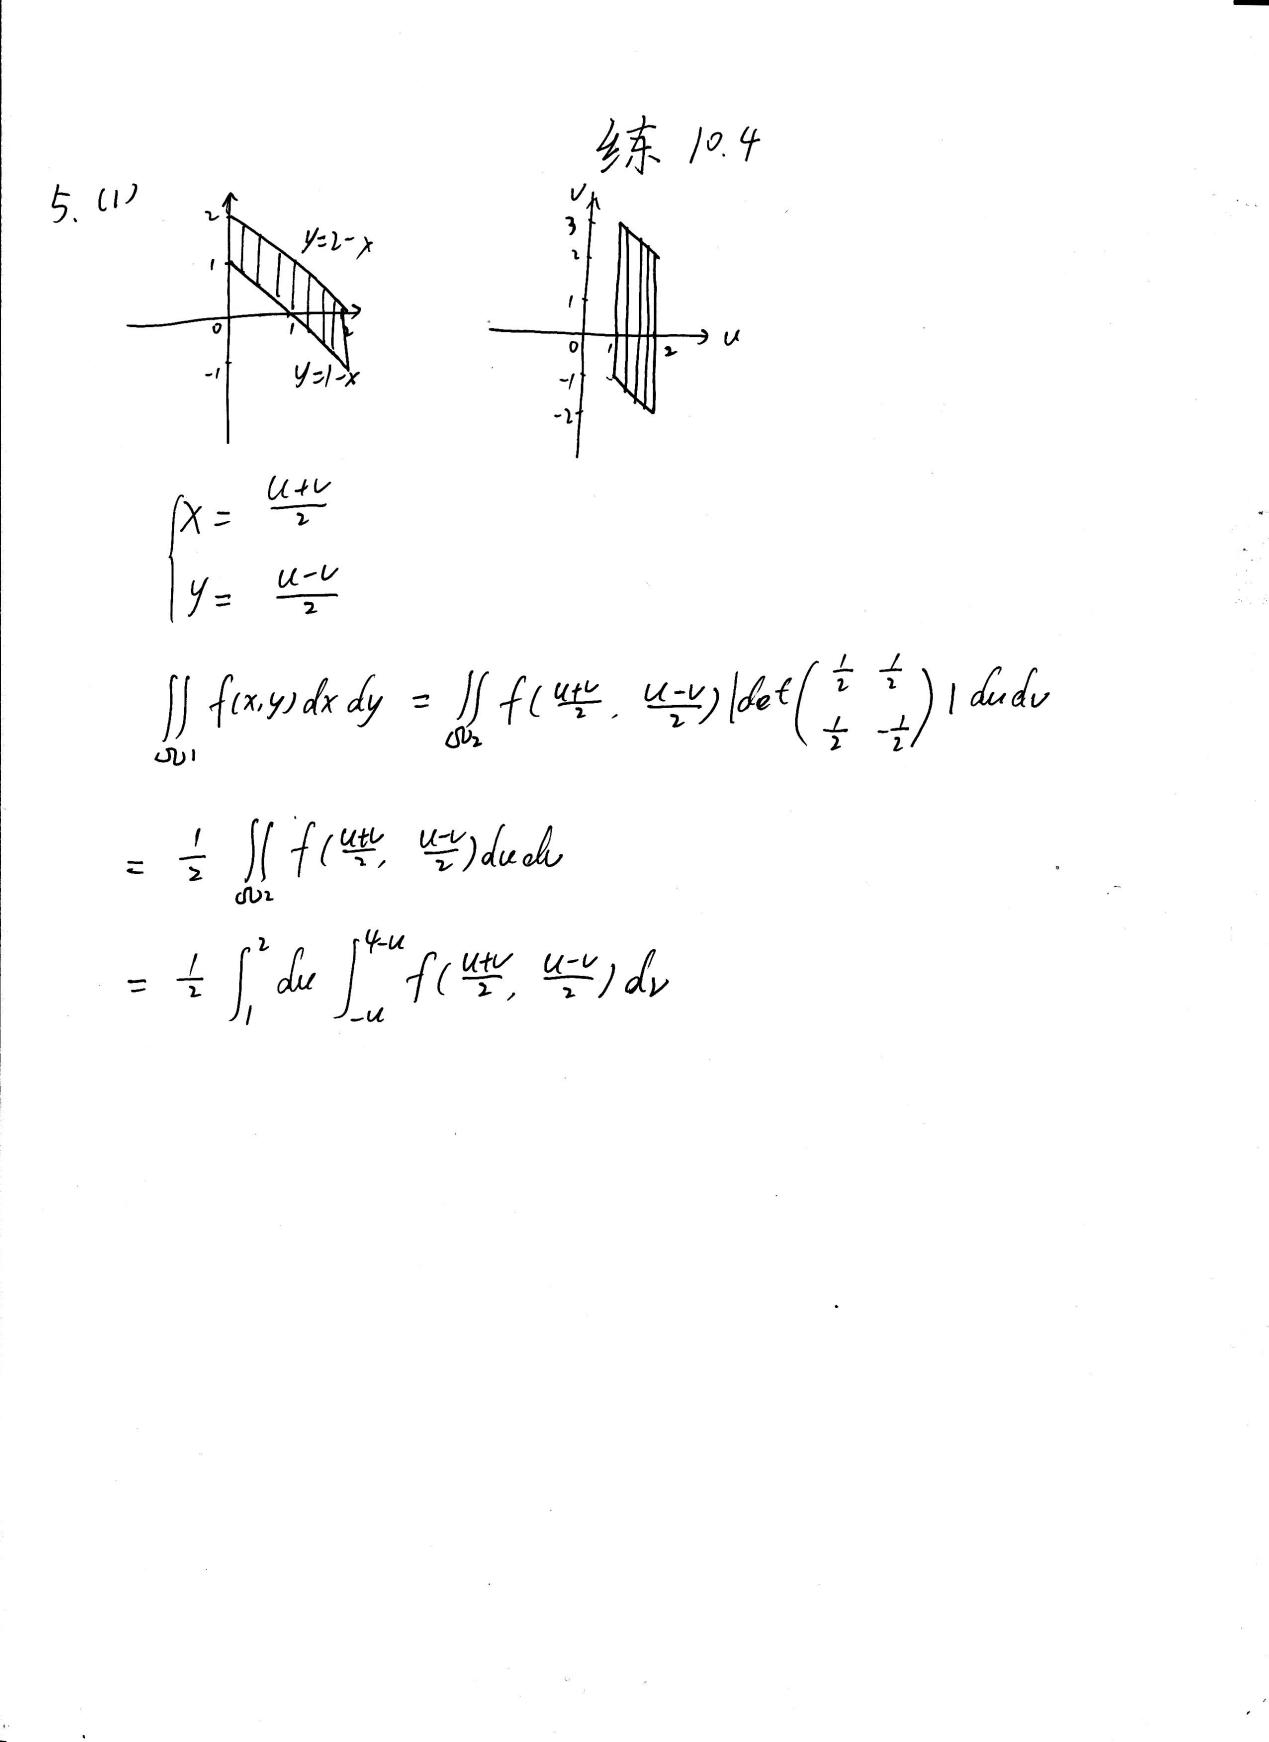 练 10.4
5. (1)
2
1
0
1
2
-1
y=2-x
y=1-x
v
3
2
1
0
1
2
u
-1
-2
{ x = (u+v)/2
y = (u-v)/2
∬_Ω1 f(x,y) dx dy = ∬_Ω2 f((u+v)/2, (u-v)/2) |det(1/2 1/2; 1/2 -1/2)| du dv
= 1/2 ∬_Ω2 f((u+v)/2, (u-v)/2) du dv
= 1/2 ∫_1^2 du ∫_{-u}^{4-u} f((u+v)/2, (u-v)/2) dv